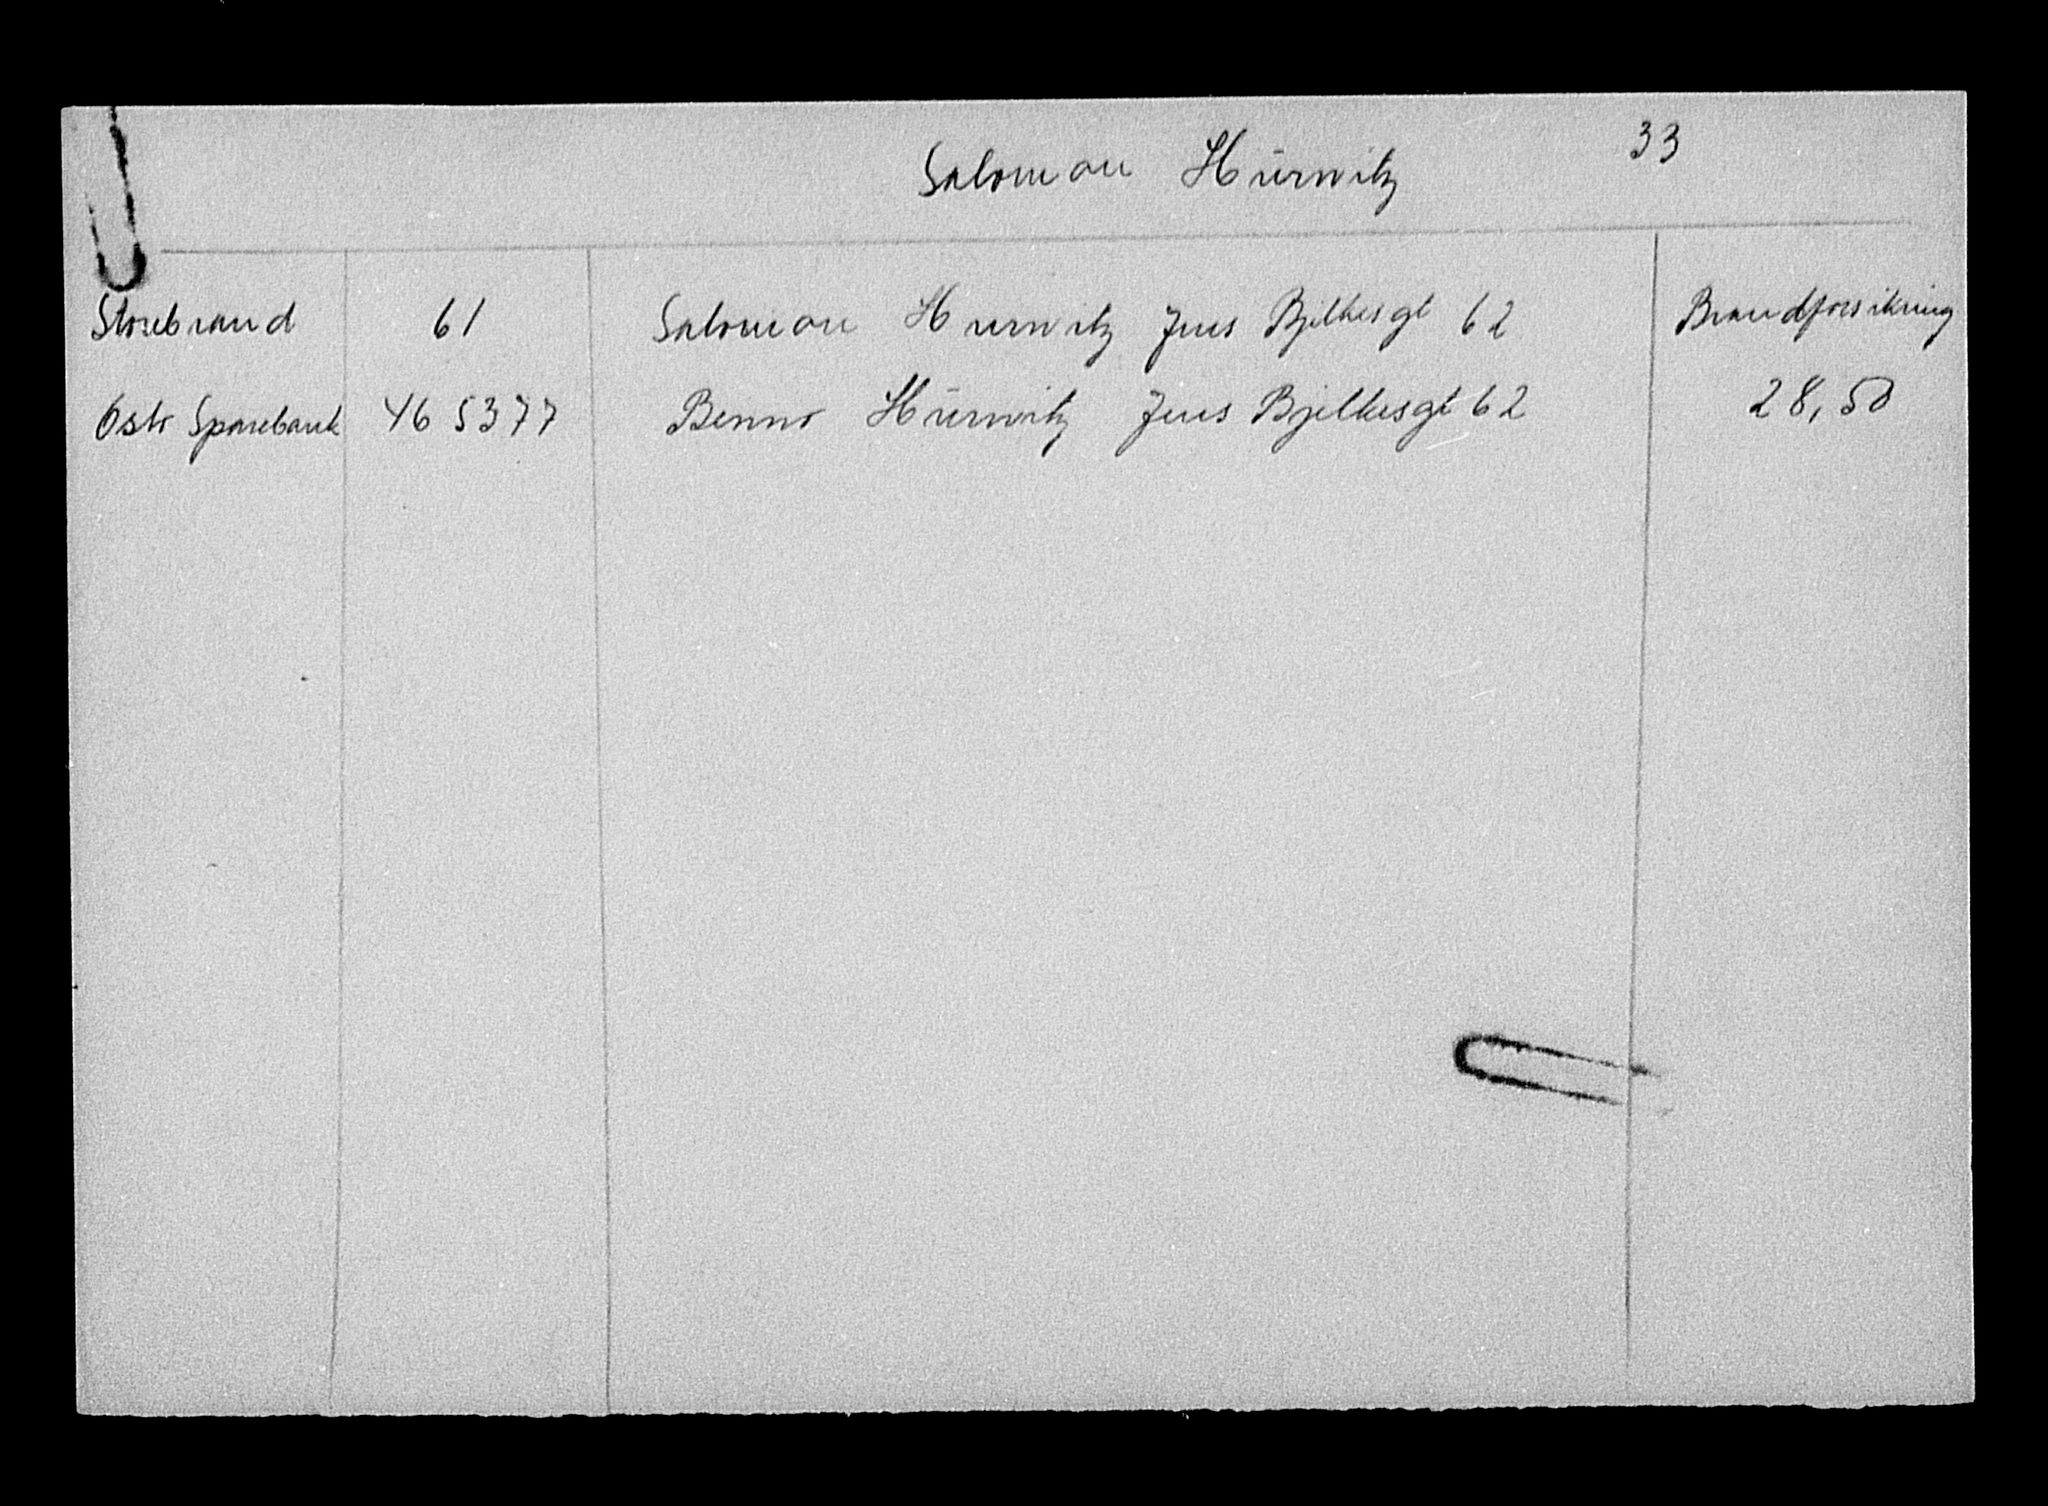 33
Salomon Hürwitz
Storebrand 61 Salomon Hurwitz Jens Bjelkesgt 62 Brandforsikring
Oslo Sparebank 465377 Benno Hürwitz Jens Bjelkesgt 62 28,50